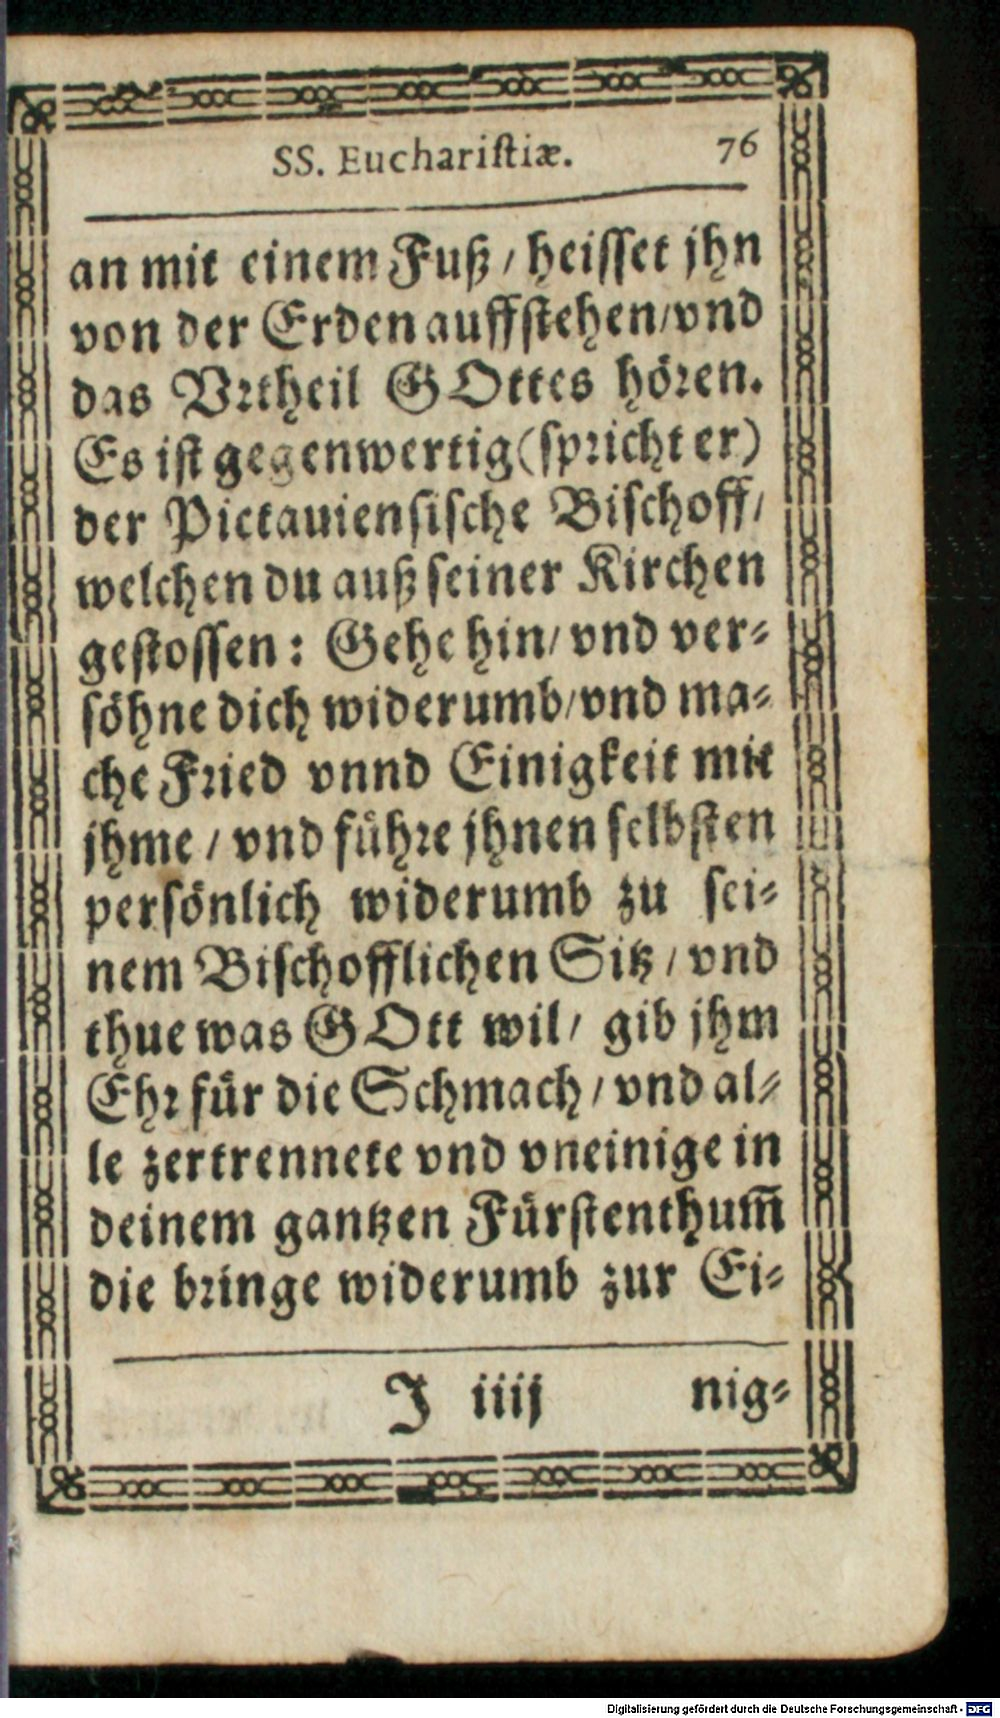 SS. Euchariſtiæ. 76
an mit einem Fuß / heiſſet jhn
von der Erden auffſtehen / vnd
das Vrtheil GOttes hören.
Es iſt gegenwertig (ſpricht er)
der Pictauienſiſche Biſchoff /
welchen du auß ſeiner Kirchen
geſtoſſen: Gehe hin / vnd ver⸗
ſöhne dich widerumb / vnd ma⸗
che Fried vnnd Einigkeit mit
jhme / vnd führe jhnen ſelbſten
perſönlich widerumb zu ſei⸗
nem Biſchofflichen Sitz / vnd
thue was GOtt wil / gib jhm
Ehr für die Schmach / vnd al⸗
le zertrennete vnd vneinige in
deinem gantzen Fürſtenthum̃
die bringe widerumb zur Ei⸗
J iiij nig⸗
Digitalisierung gefördert durch die Deutsche Forschungsgemeinschaft - DFG